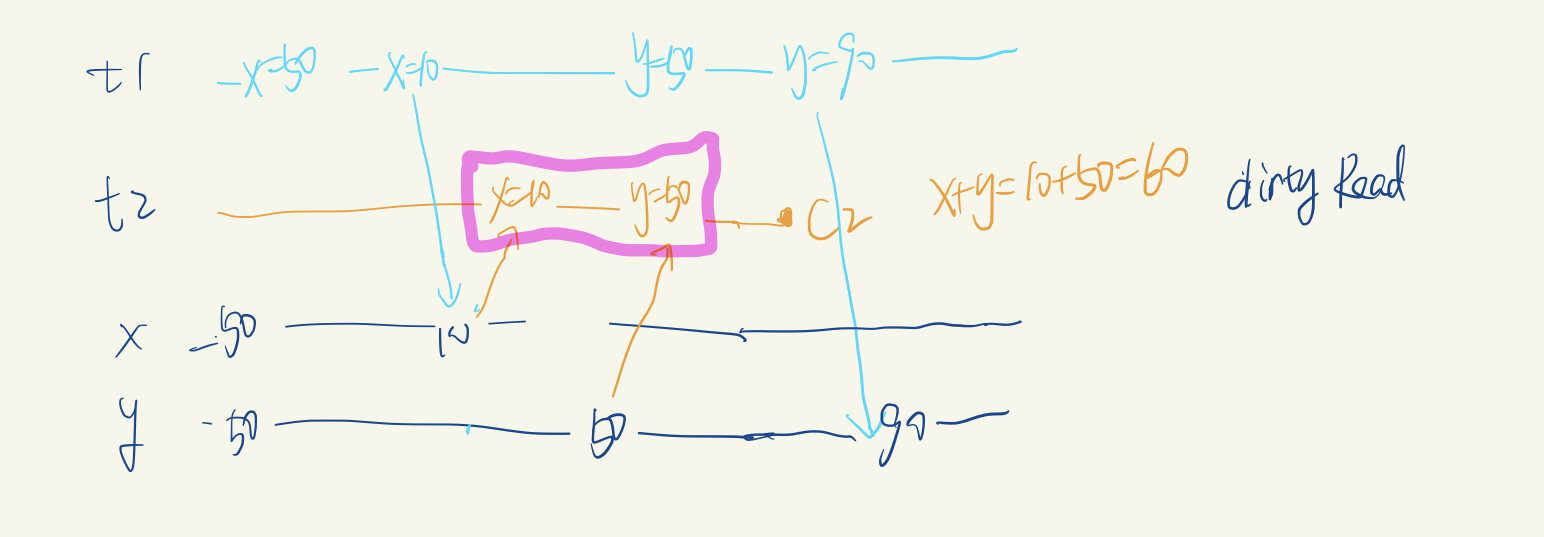 t1 x=50 x=10 y=50 y=90
t2 x=10 y=50 C2 x+y=10+50=60 dirty Read
x 50 10
y 50 50 90